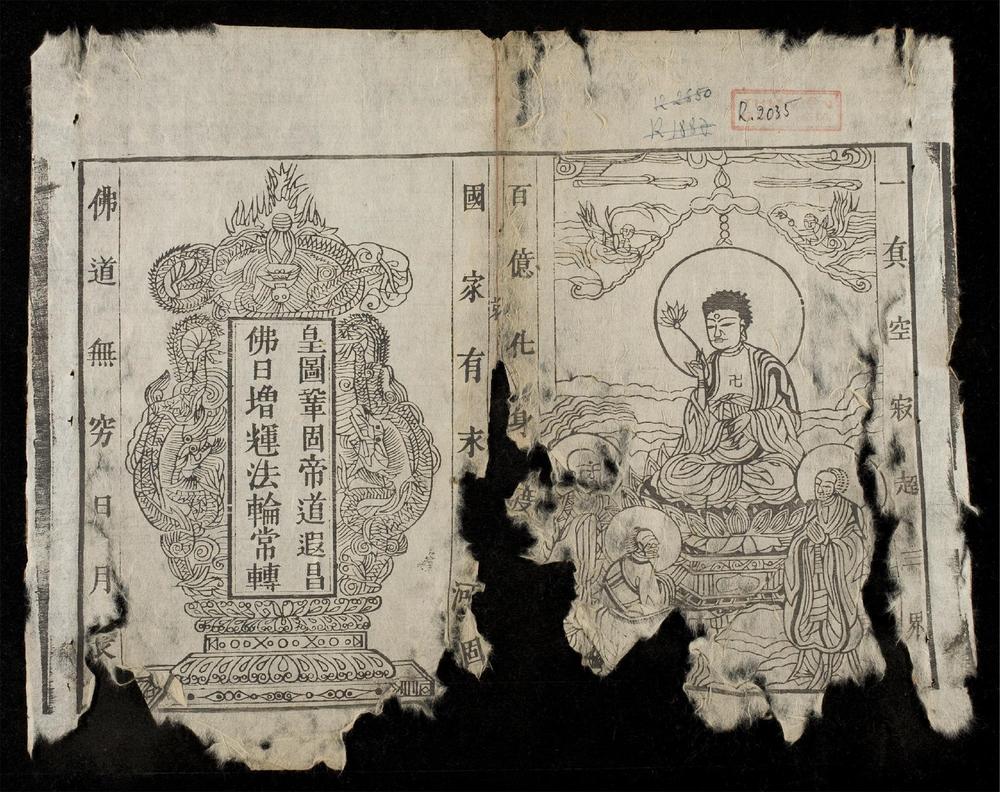 R.2035
一真空寂超三界
卍
百億化身度
國家有永河固
皇圖鞏固帝道遐昌
佛日增輝法輪常轉
佛道無穷日月長